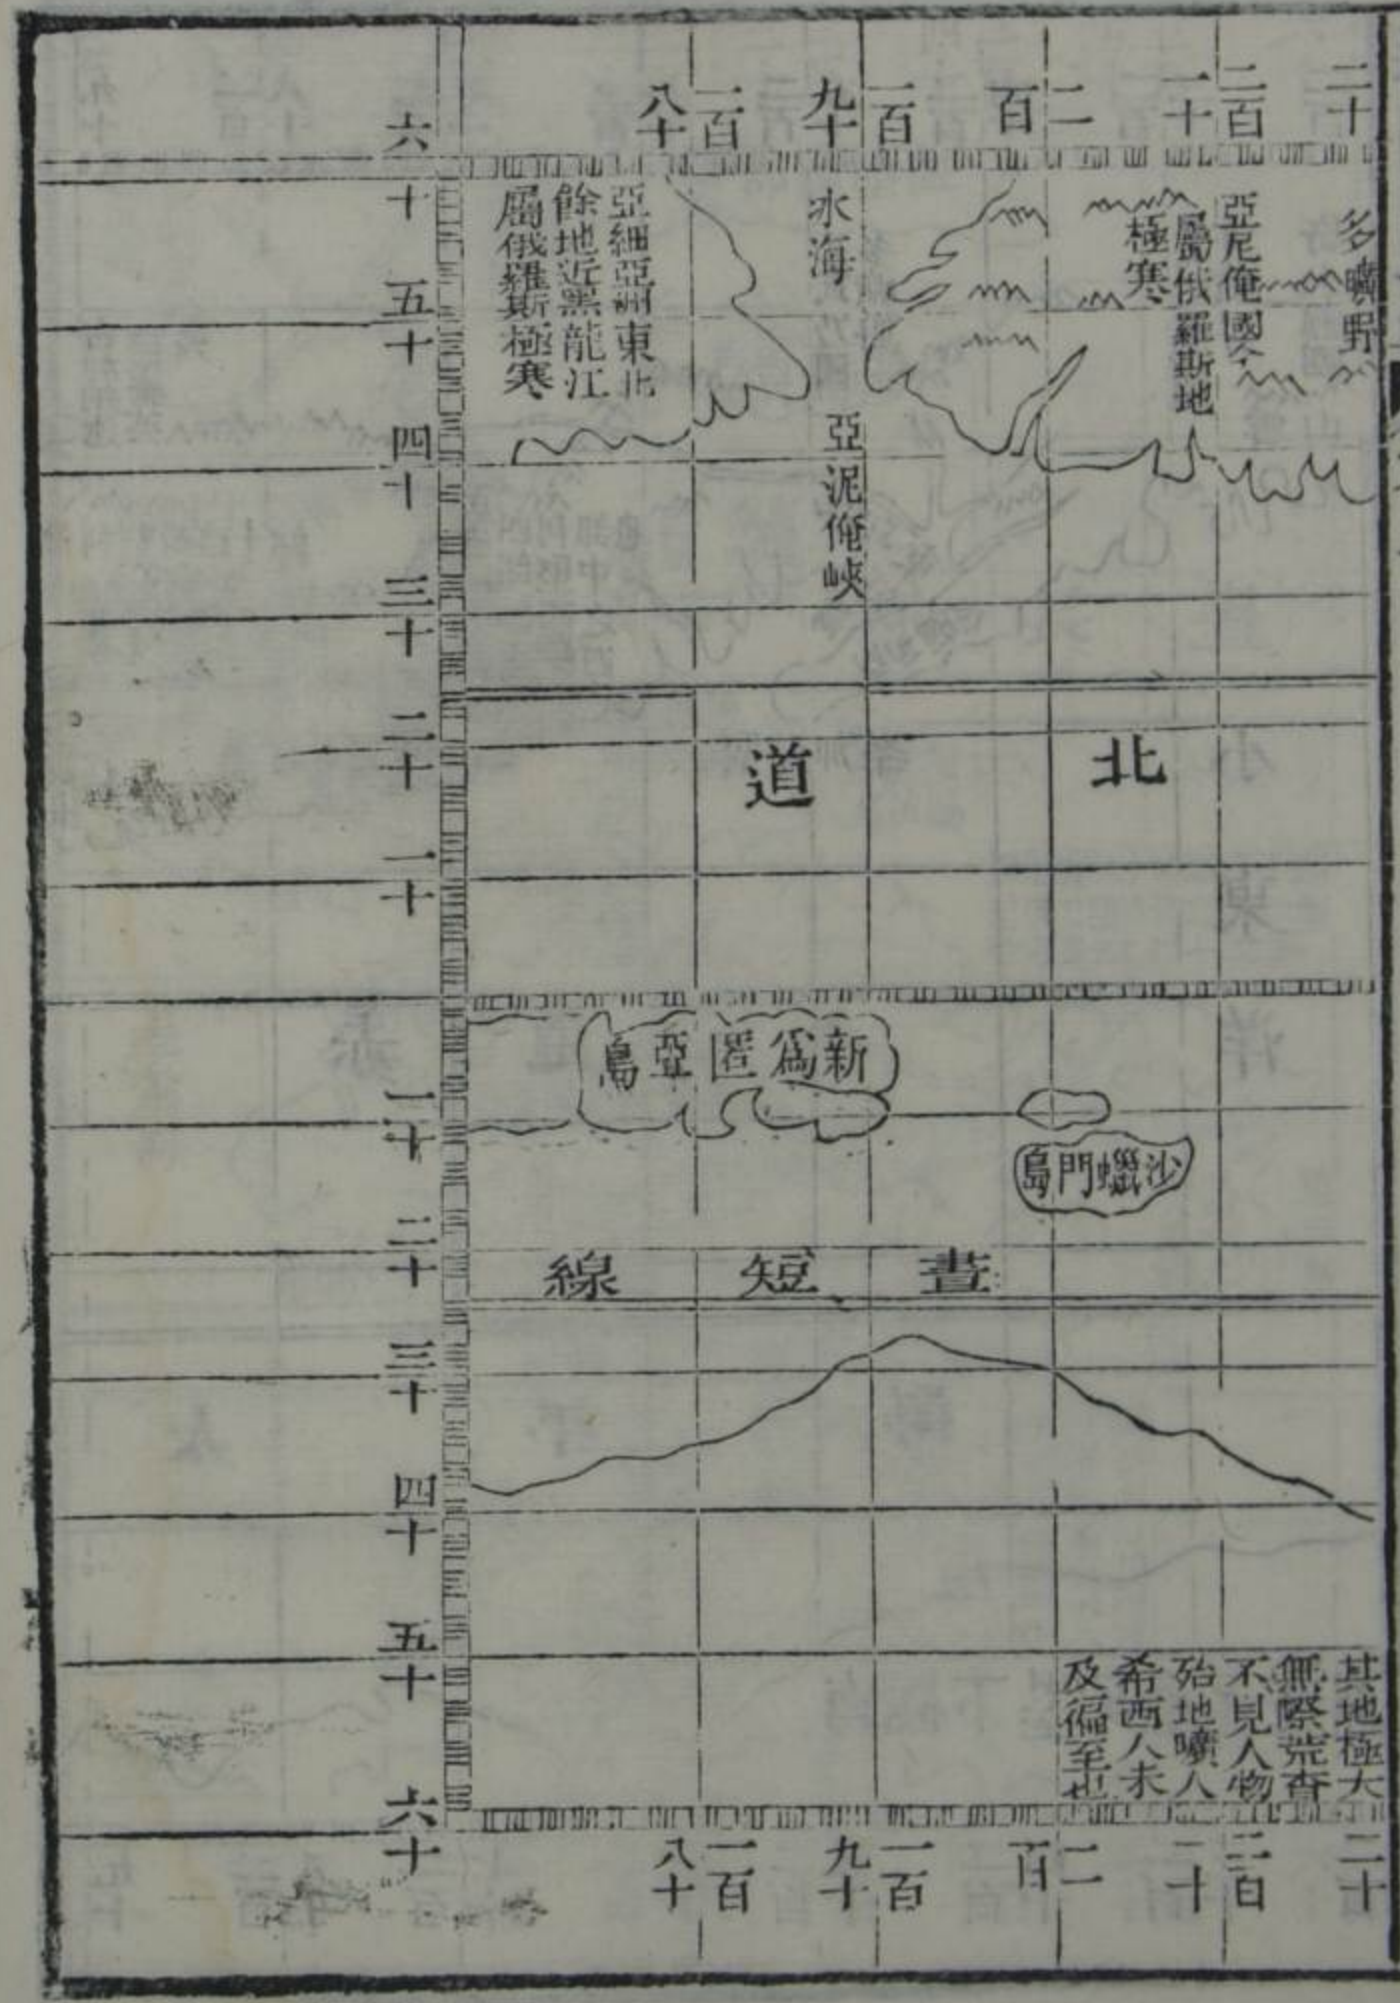 二十
二百一十
二百
一百九十
一百八十
六十
五十
四十
三十
二十
一十
一十
二十
三十
四十
五十
六十
多曠野
亞尼俺國今
屬俄羅斯地
極寒
冰海
亞泥俺峽
亞細亞洲東北
餘地近黑龍江
屬俄羅斯極寒
北道
新爲匿亞島
沙蠟門島
晝短線
其地極大
無際荒杳
不見人物
殆地曠人
希西人未
及徧至也
二十
二百一十
二百
一百九十
一百八十